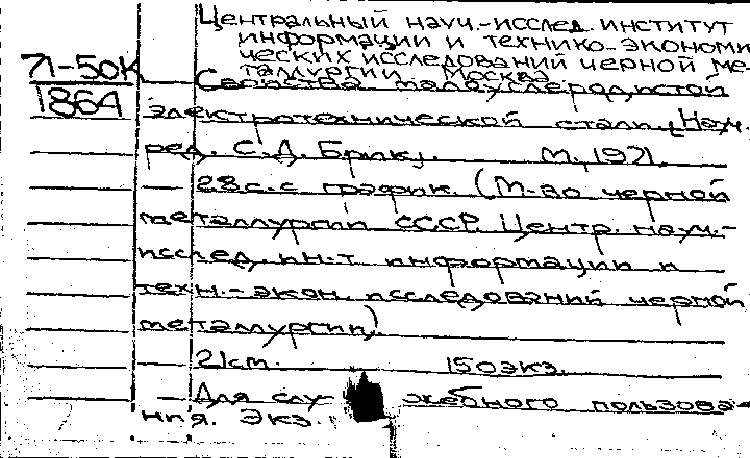 Центральный науч.-исслед. институт
информации и технико-экономи-
ческих исследований черной ме-
таллургии. Москва
71-50К
186А
Свойства малоуглеродистой
электротехнической стали. (Науч.
ред. С.Д. Брик). М., 1971.
— 28 с. с график. (М-во черной
металлургии СССР. Центр. науч.-
исслед. ин-т информации и
техн.-экон. исследований черной
металлургии)
— 21 см. 150 экз.
— Для служебного пользова-
ния. Экз.